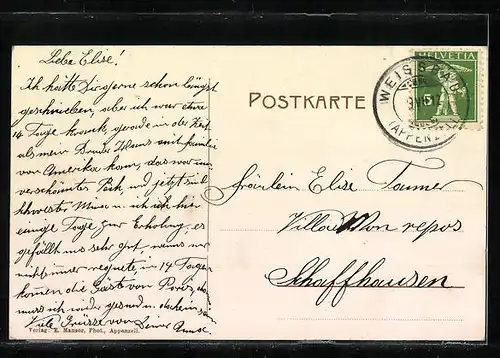 Liebe Elise!
Ich hätte Dir gerne schon längst
geschrieben, aber ich war etwa
14 Tage krank, gerade in der Zeit
als mein Bruder Hans mit Familie
von Amerika kam, das war ein
verschöntes Pech, und jetzt sind
Schwester und ich hier
einige Tage zur Erholung, es
gefällt uns sehr gut wenns nur
nicht immer regnete, in 14 Tagen
kommen die Gäste von Paris, da
muss ich wieder gesund daheim sein
Viele Grüsse von Deiner
Verlag E. Manser, Phot., Appenzell.
POSTKARTE
HELVETIA
WEISSBAD
(APPENZ
Fräulein Elise Tanner
Villa Mon repos
Schaffhausen